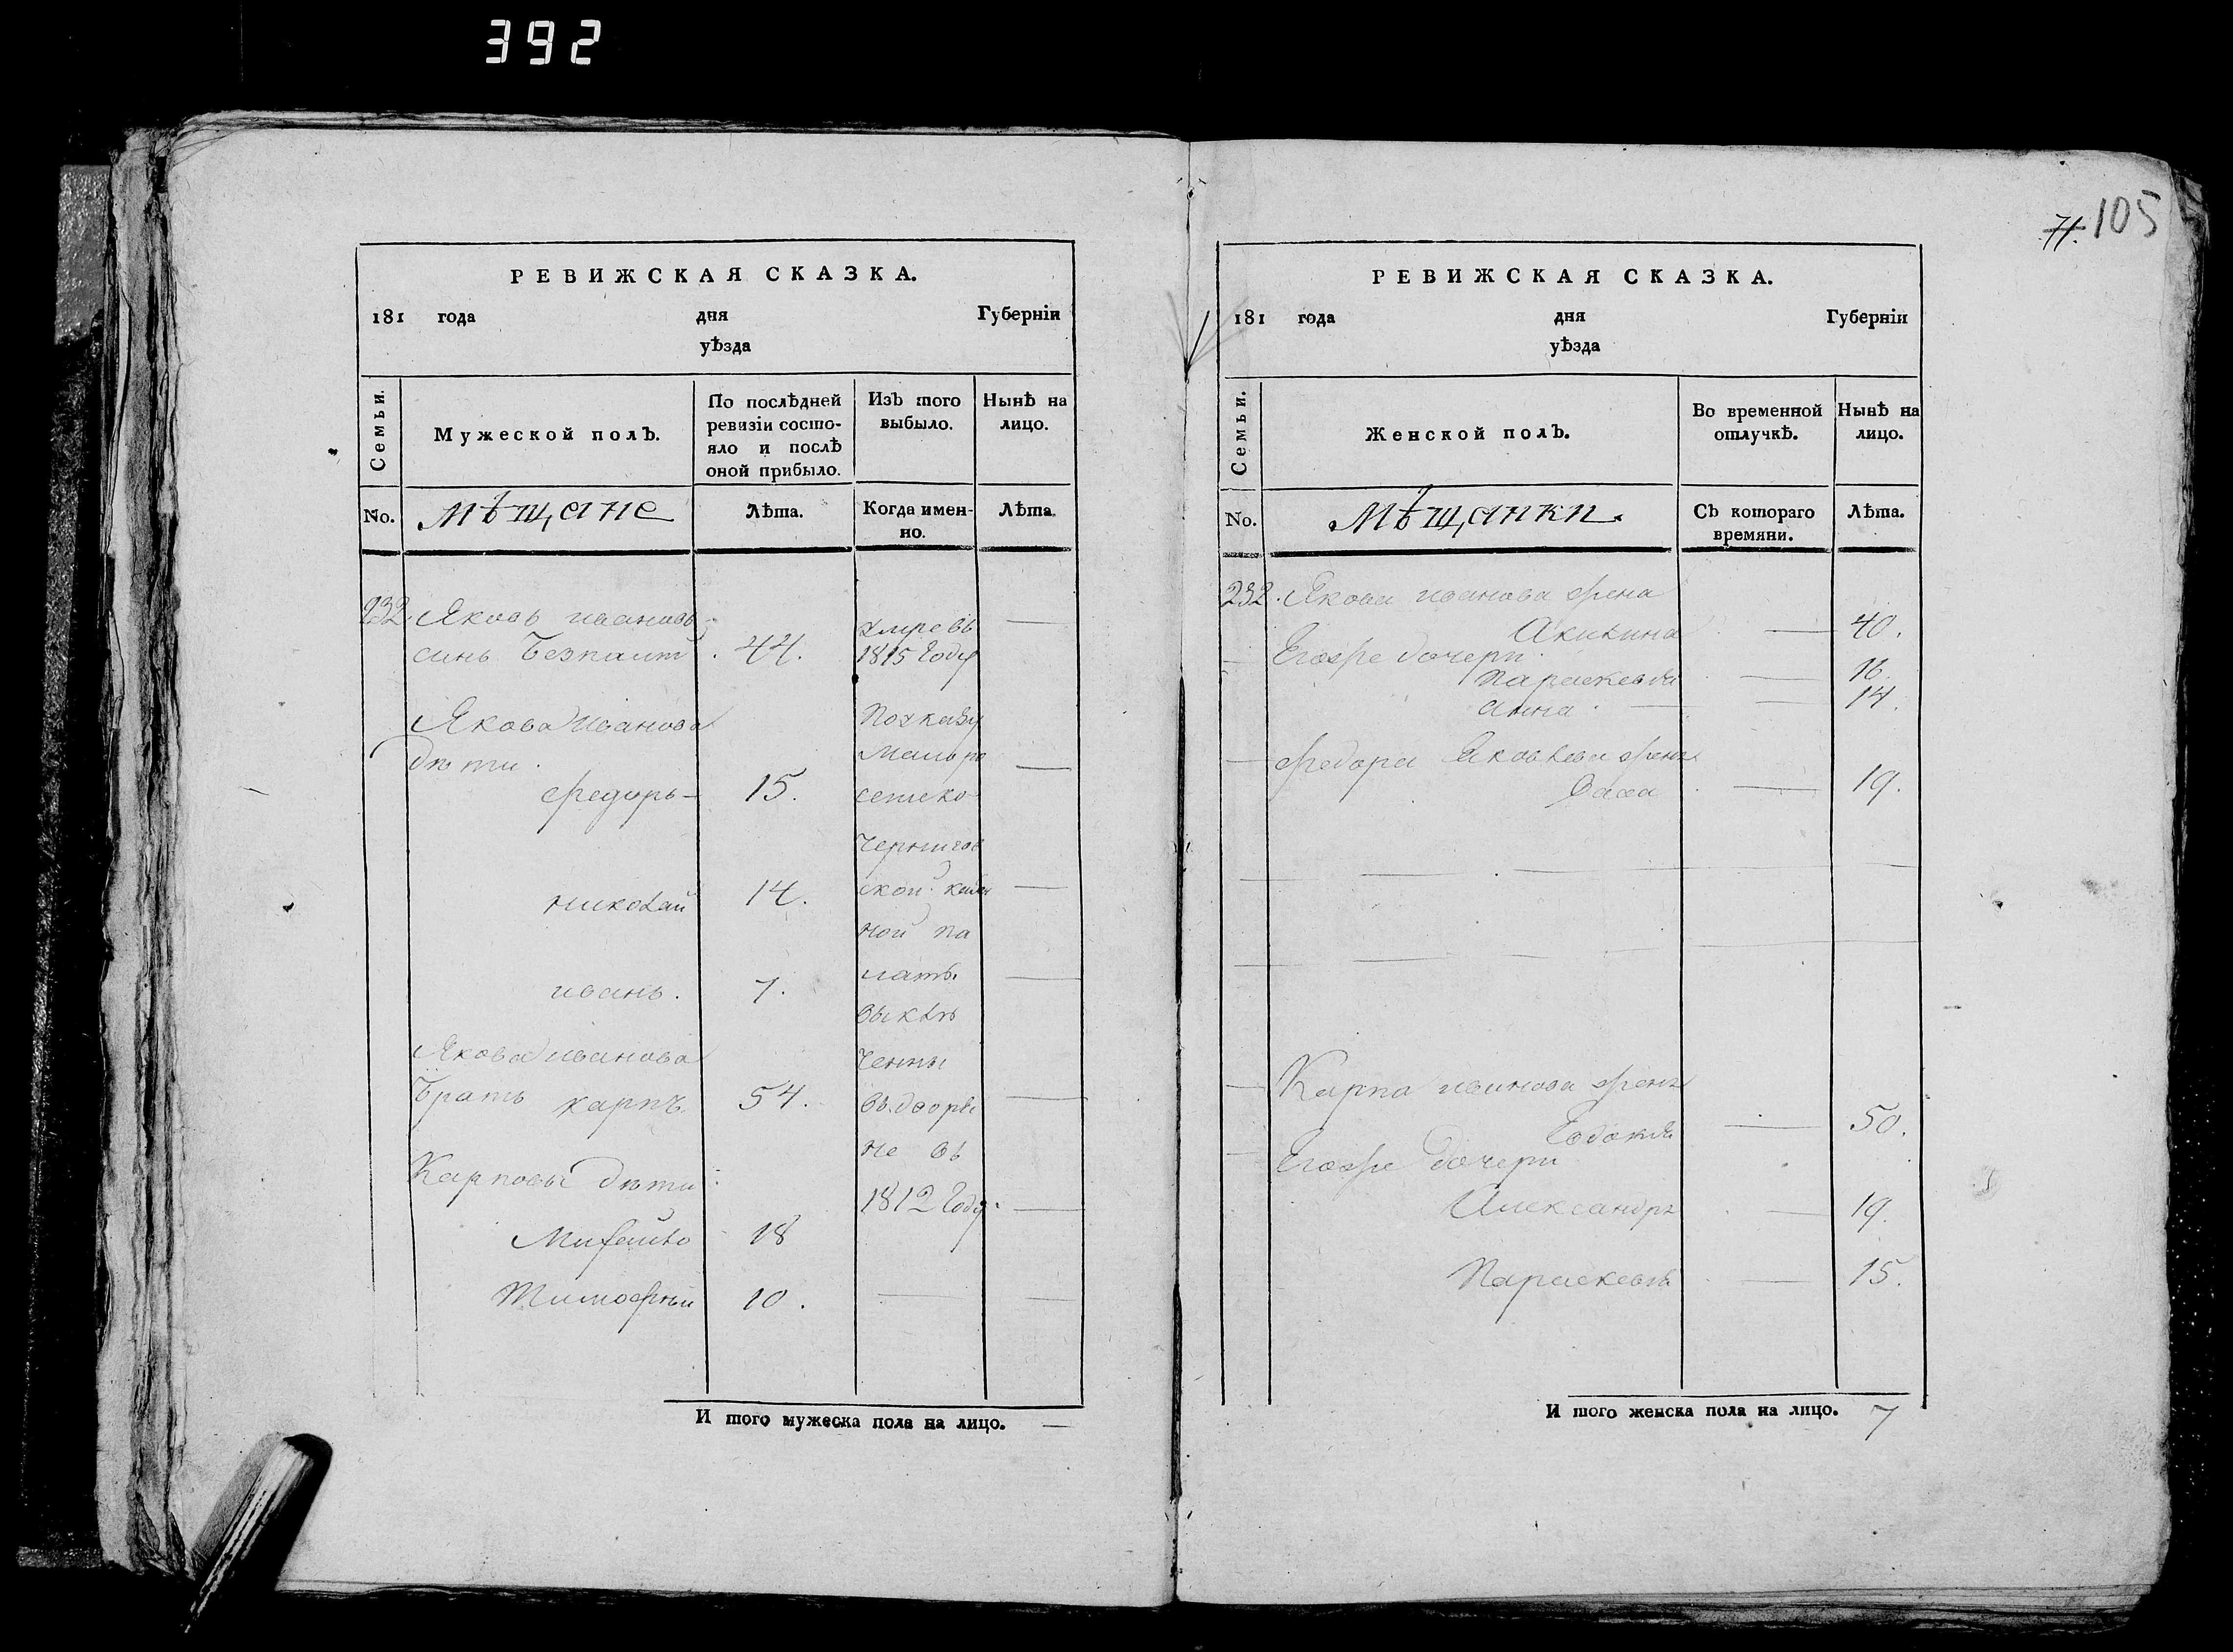 392
105
РЕВИЖСКАЯ СКАЗКА.
181 года дня Губерніи
уѣзда
Семьи.
Мужеской полъ.
По послѣдней
ревизіи состо-
яло и послѣ
оной прибыло.
Изъ того
выбыло.
Нынѣ на
лицо.
No.
мѣщане
Лѣта.
Когда имен-
но.
Лѣта
232. Яковъ ивановъ
синъ 44.
умре въ
1815 Году
Якова Иванова
дѣти.
Федоръ 15.
Николай 14.
иванъ. 7.
Якова иванова
Братъ карпъ 54.
Карповы дѣти
Михайло 18
Тимофѣй 10.
По указу
Мало ро
сииско
Чернигов
ской казен
ной па
латы
выклю
ченны
въ дворя
не въ
1812 Году
И того мужеска пола на лицо. —
РЕВИЖСКАЯ СКАЗКА.
181 года дня Губерніи
уѣзда
Семьи.
Женской полъ.
Во временной
отлучкѣ.
Нынѣ на
лицо.
No.
мѣщанки.
Съ котораго
времяни.
Лѣта.
232. Якова иванова жена
Акилина — 40.
Егоже дочери
Параскевия — 16.
Анна — 14.
Федора Яковлева жена
19.
Карпа иванова жена
Евдокия — 50.
Егоже дочери
Александра — 19.
Параскевия — 15.
И того женска пола на лицо. 7